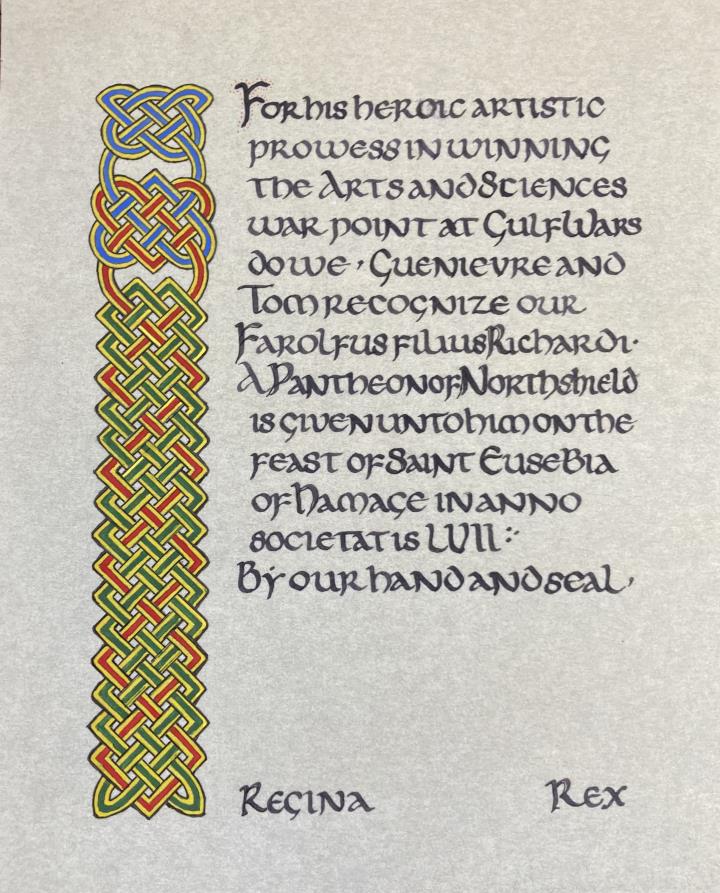 For his heroic artistic
prowess in winning
the Arts and Sciences
war point at Gulf Wars
do we, Guenievre and
Tom recognize our
Farolfus filius Richardi.
A Pantheon of Northshield
is given unto him on the
feast of Saint Eusebia
of Hamage in anno
societatis LVII :·
By our hand and seal,
Regina Rex